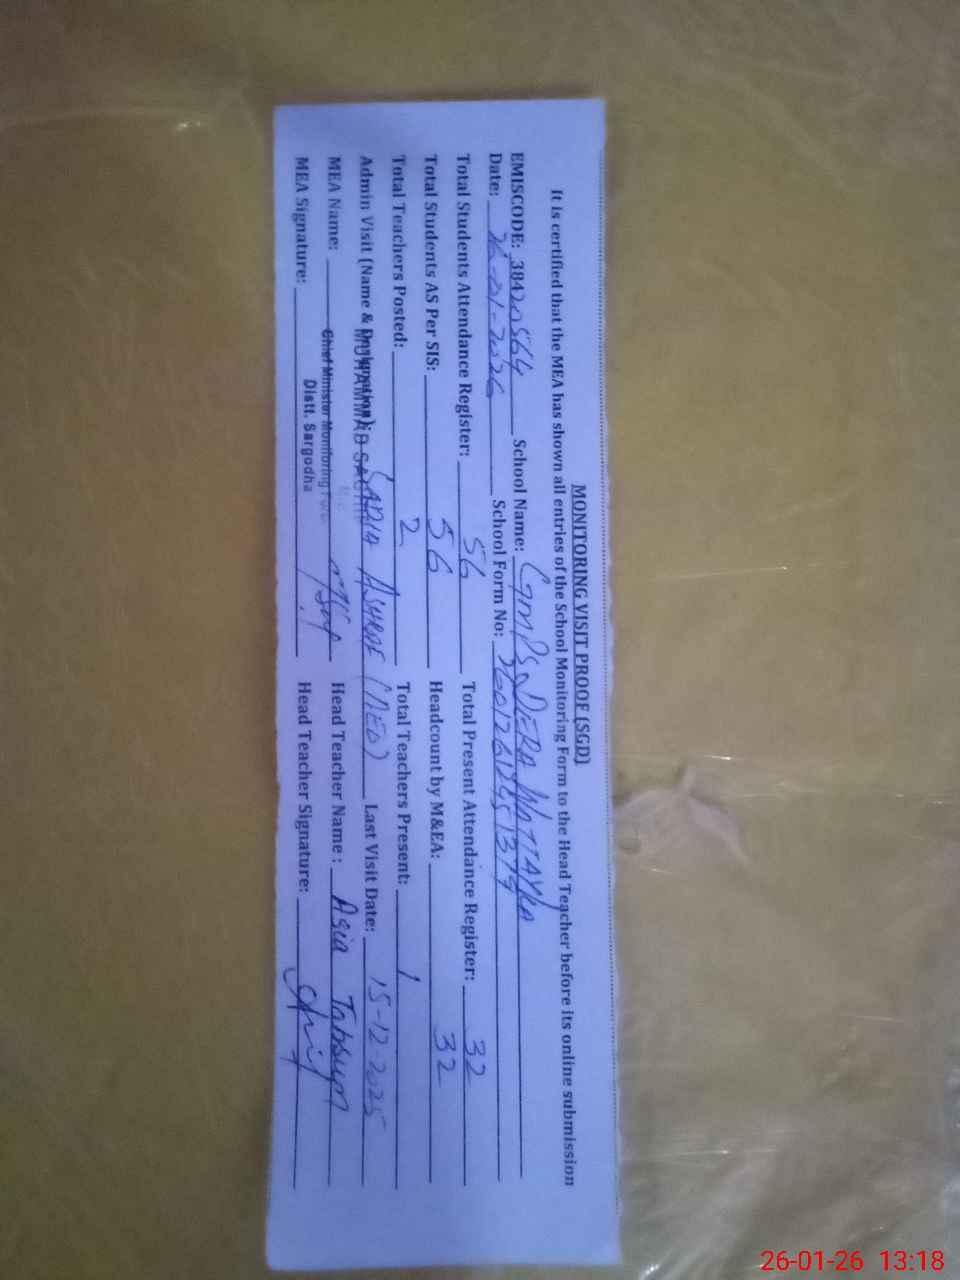 MONITORING VISIT PROOF (SGD)
It is certified that the MEA has shown all entries of the School Monitoring Form to the Head Teacher before its online submission
EMISCODE: 38420564 School Name: GMPS DERA
Date: 26-01-2026 School Form No:
Total Students Attendance Register: 56 Total Present Attendance Register: 32
Total Students AS Per SIS: 56 Headcount by M&EA: 32
Total Teachers Posted: 2 Total Teachers Present: 1
Admin Visit (Name & Designation): Sadia Ashraf Last Visit Date: 15-12-2025
MUHAMMAD
MEA Name: Head Teacher Name : Asia Tabsum
Chief Minister Monitoring Force
MEA Signature: Head Teacher Signature:
Distt. Sargodha
26-01-26 13:18